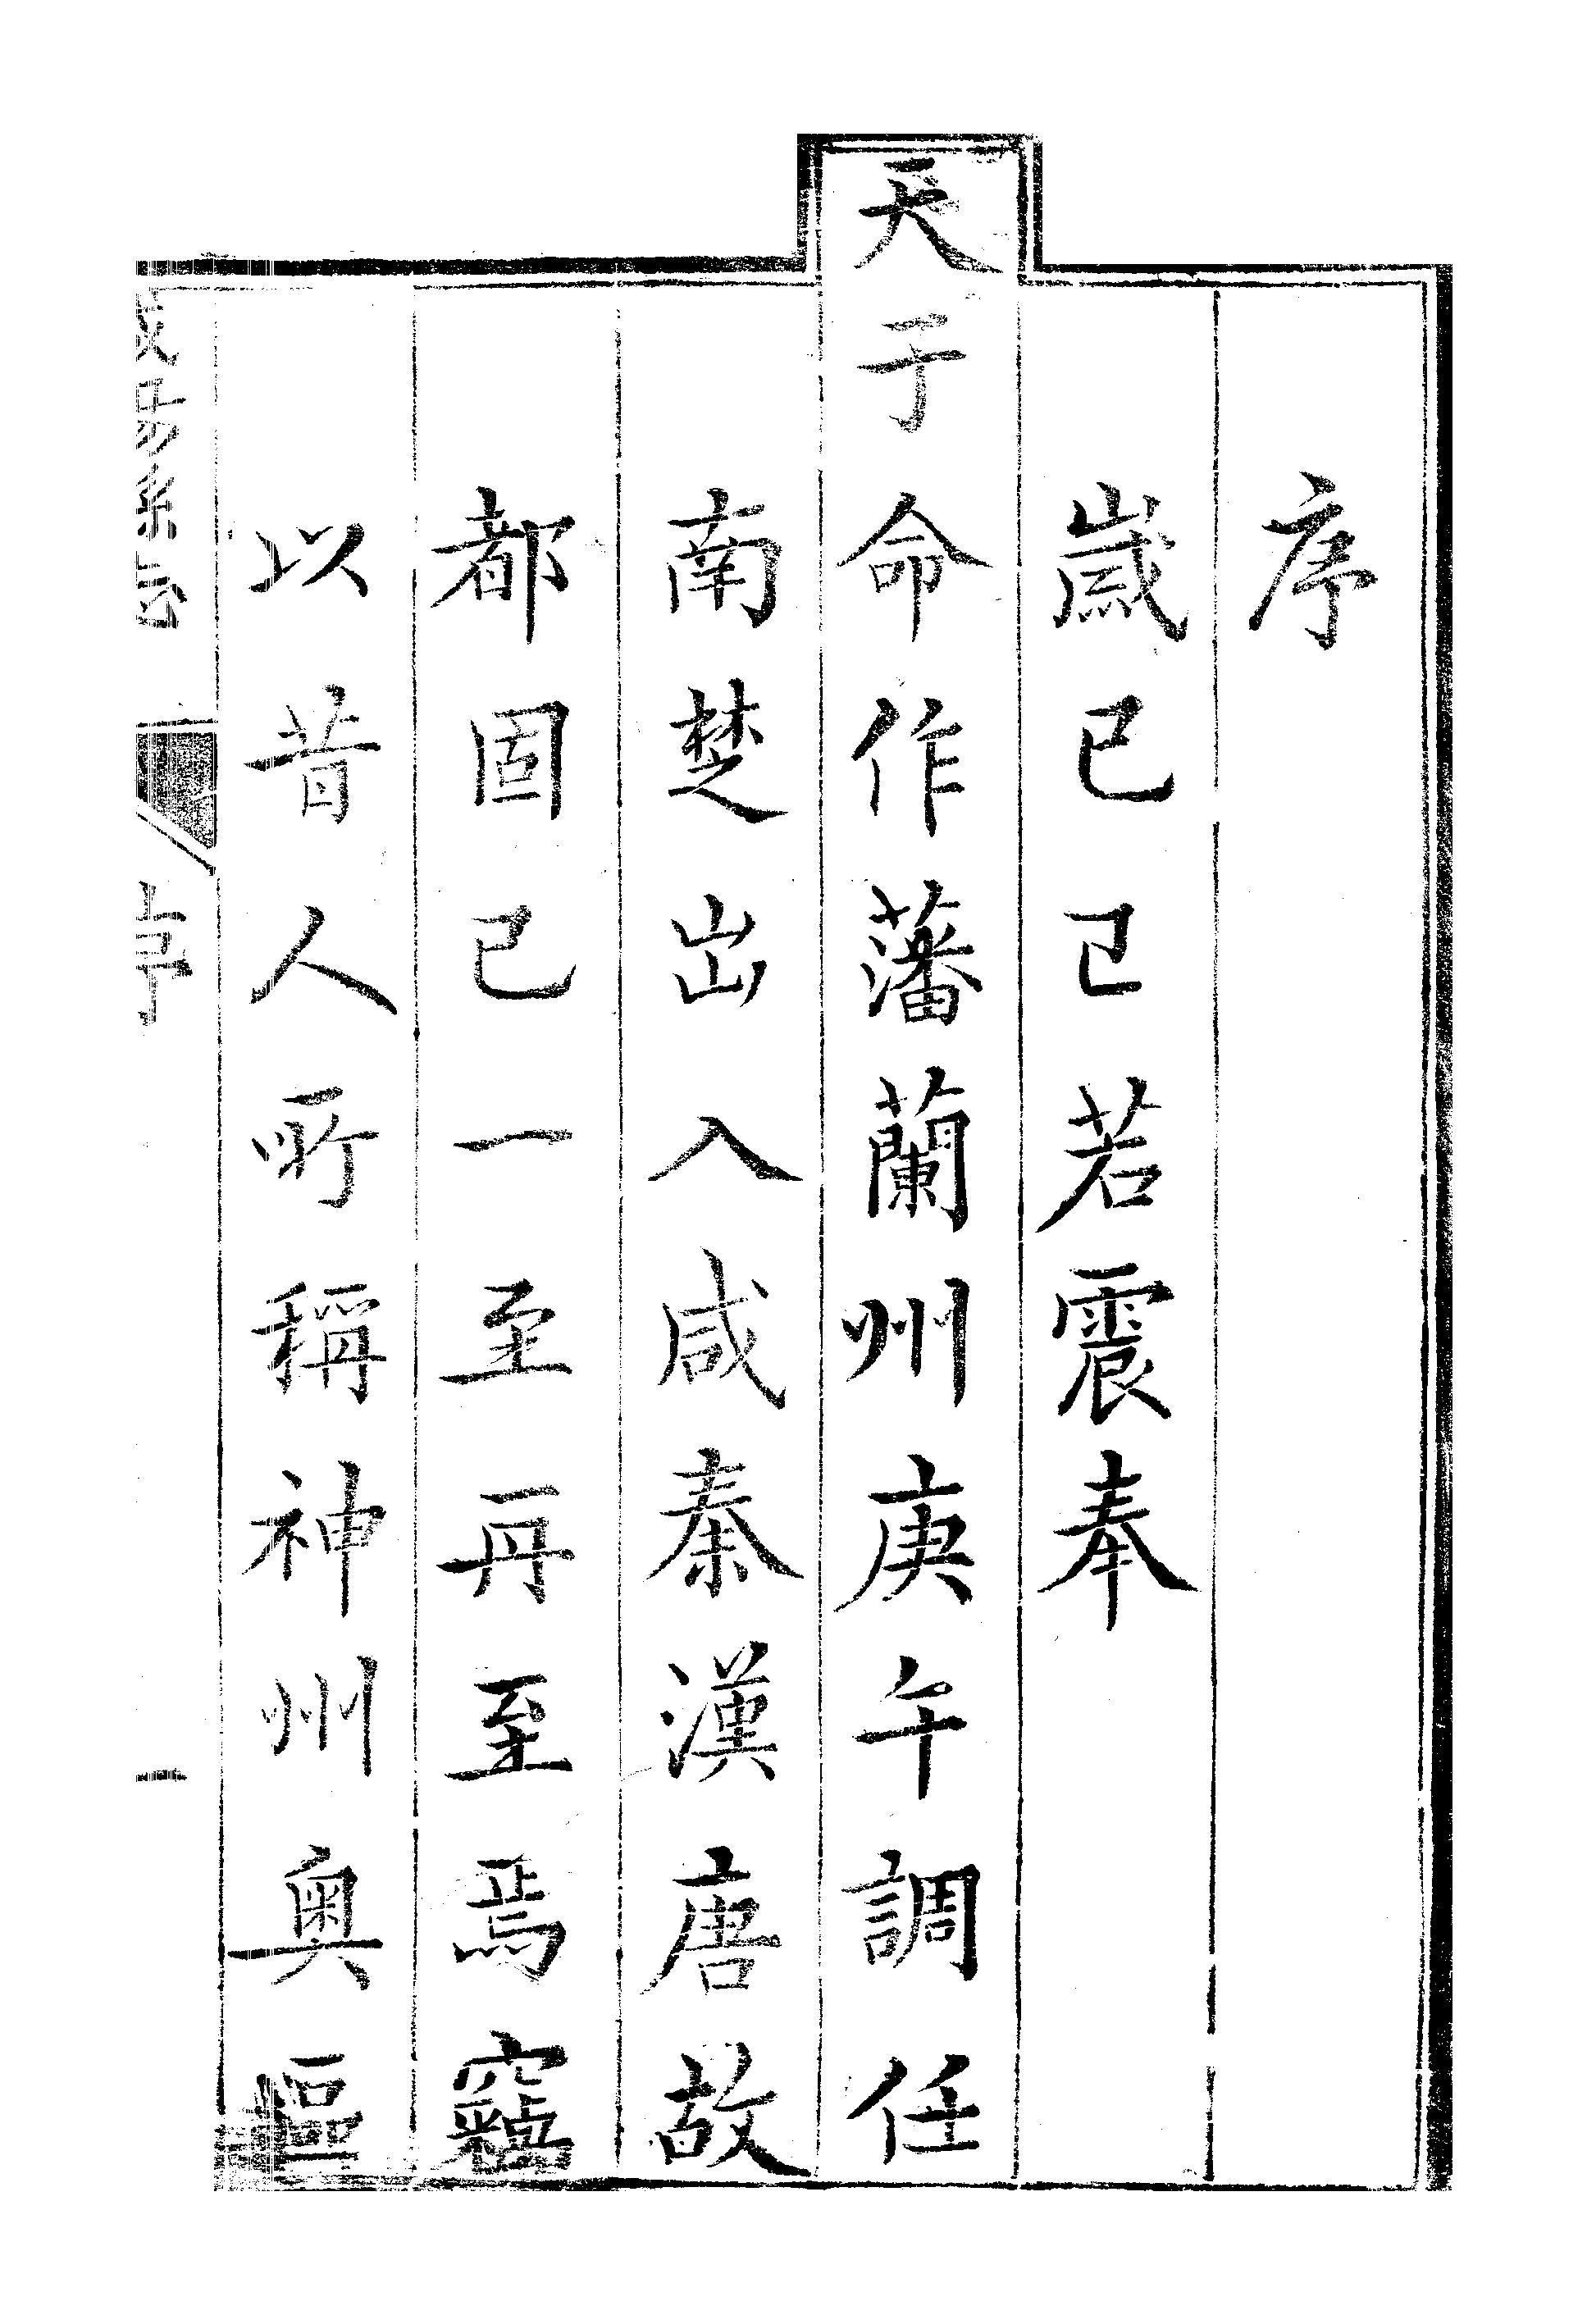 序
歲已巳若震奉
天子命作藩蘭州庚午調任
南楚出入咸秦漢唐故
都固已一至再至焉竊
以昔人所稱神州奥區
序
一